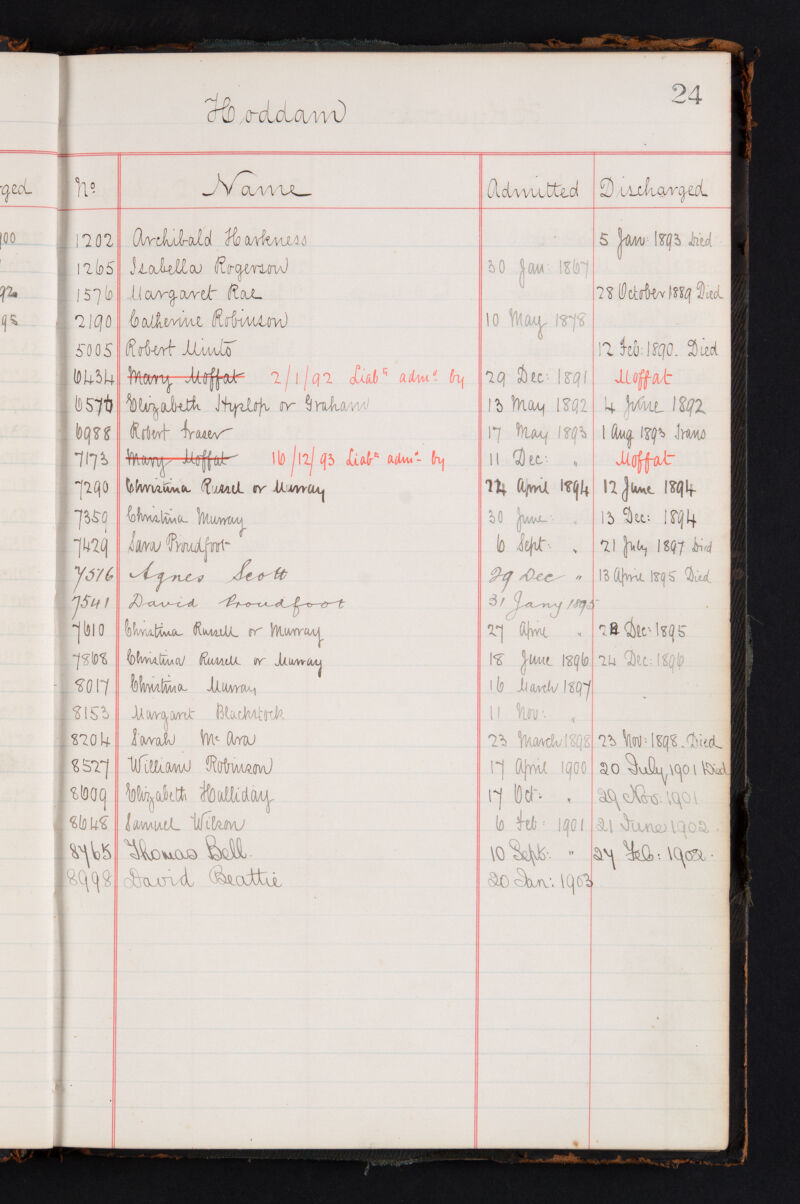 24
Hoddam
ged No Name Admitted Discharged
00 1202 Archibald Harkness 5 Jan: 1893 Died
1265 Isabella Rogerson 30 Jan: 1867
92 1576 Margaret Rae 28 October 1889 Died
95 2190 Catherine Robinson 10 May 1878
5005 Robert Minto 12 Feb: 1890. Died
6434 Mary Moffat 2/1/92 Liaby admd by 29 Dec: 1891 Moffat
6570 Elizabeth Hyslop or Graham 13 May 1892 4 June 1892
6988 Robert Fraser 17 May 1893 1 Aug 1893 Trans
7173 Mary Moffat 16/12/93 Liaby admd by 11 Dec: " Moffat
7290 Christina Russell or Murray 24 April 1894 12 June 1894
7359 Christina Murray 30 June " 13 Dec: 1894
7429 Sara Proudfoot 6 Sept: " 21 July 1897 Died
7516 Agnes Scott 29 Dec " 13 April 1895 Died
7541 David Proudfoot 31 Jany 1895
7610 Christina Russell or Murray 27 April " 28 Dec: 1895
7808 Christina Russell or Murray 18 June 1896 24 Dec: 1896
8017 Christina Murray 16 March 1897
8153 Margaret Blacklock 11 Nov: "
8204 Sarah Mc Ara 23 March 1898 23 Nov: 1898. Died
8527 William Robinson 17 April 1900 20 July, 1901 Died
8609 Elizabeth Halliday 17 Oct: " 29 Nov: 1901
8648 Samuel Wilson 6 Feb: 1901 21 June 1902.
8765 Thomas Bell. 10 Sept: " 24 Feb: 1902.
8998 David Beattie 20 Jan: 1903